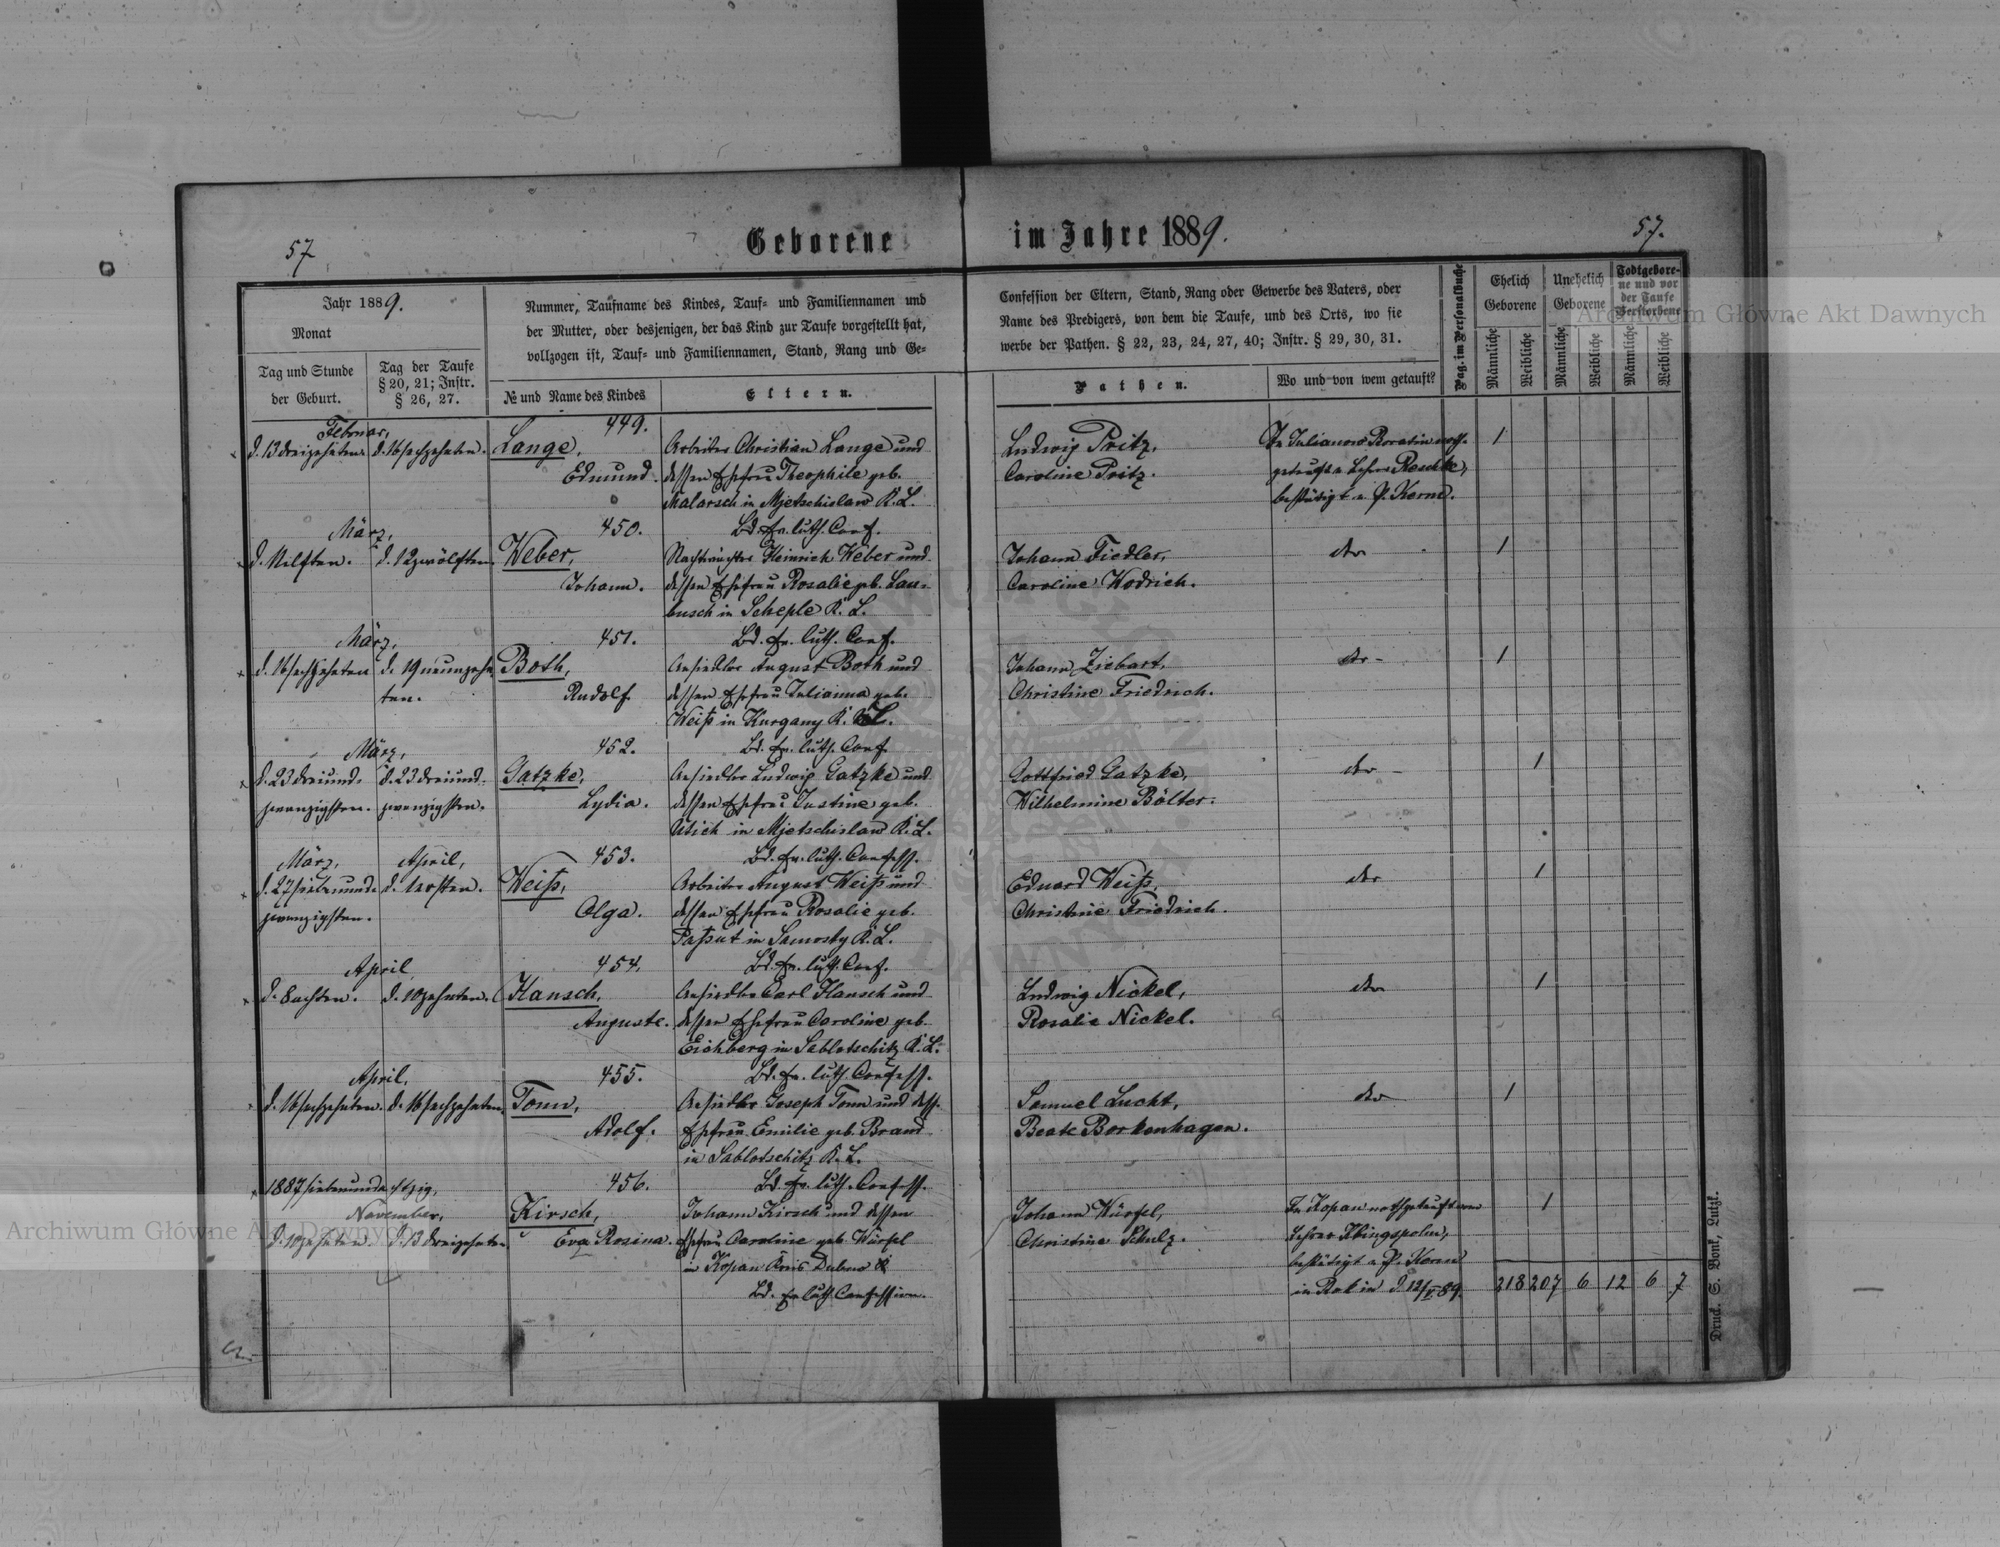 57
Geborene
im Jahre 1889.
57.
Jahr 1889.
Monat
Tag und Stunde
der Geburt.
Tag der Taufe
§ 20, 21; Instr.
§ 26, 27.
Nummer, Taufname des Kindes, Tauf- und Familiennamen und
der Mutter, oder desjenigen, der das Kind zur Taufe vorgestellt hat,
vollzogen ist, Tauf- und Familiennamen, Stand, Rang und Ge-
№ und Name des Kindes
Eltern.
Confession der Eltern, Stand, Rang oder Gewerbe des Vaters, oder
Name des Predigers, von dem die Taufe, und des Orts, wo sie
werbe der Pathen. § 22, 23, 24, 27, 40; Instr. § 29, 30, 31.
Pathen.
Wo und von wem getauft?
Pag. im Personalbuche
Ehelich
Geborene
Unehelich
Geborene
Todtgebore-
ne und vor
der Taufe
Verstorbene
Männliche
Weibliche
Männliche
Weibliche
Männliche
Weibliche
Archiwum Główne Akt Dawnych
Februar,
d. 13 dreizehnten. d. 16 sechzehnten.
449.
Lange,
Edmund.
Arbeiter Christian Lange und
dessen Ehefrau Theophile geb.
Malarsch in Mjetschislaw K. L.
Bd. ev. luth. Conf.
Ludwig Pritz,
Caroline Pritz.
getauft v. Lehrer
bestätigt v. P. Kerm.
1
März,
d. 11 elften. d. 12 zwölften.
450.
Weber,
Johann.
Nachtwächter Heinrich Weber und
dessen Ehefrau Rosalie geb. Lau-
busch in Scheple K. L.
Bd. ev. luth. Conf.
Johann Fiedler,
Caroline Wodrich.
dto
1
März,
d. 16 sechzehnten d. 19 neunzehn
ten.
451.
Both,
Rudolf.
Ansiedler August Both und
dessen Ehefrau Julianna geb.
Weiß in Kurgany K. L.
Bd. ev. luth. Conf.
Johann Ziebart,
Christine Friedrich.
dto
1
März,
d. 23 dreiund- d. 23 dreiund-
zwanzigsten. zwanzigsten.
452.
Gatzke,
Lydia.
Ansiedler Ludwig Gatzke und
dessen Ehefrau Justine geb.
Utich in Mjetschislaw K. L.
Bd. ev. luth. Confess.
Gottfried Gatzke,
Wilhelmine Bölter.
dto
1
März, April,
d. 27 siebenund- d. 1 ersten.
zwanzigsten.
453.
Weiß,
Olga.
Arbeiter August Weiß und
dessen Ehefrau Rosalie geb.
Paßut in Samosty K. L.
Bd. ev. luth. Conf.
Eduard Weiß,
Christine Friedrich.
dto
1
April
d. 8 achten. d. 10 zehnten.
454.
Hansch,
Auguste.
Ansiedler Carl Hansch und
dessen Ehefrau Caroline geb.
Eichberg in Sablotschitz K. L.
Bd. ev. luth. Confess.
Ludwig Nickel,
Rosalie Nickel.
dto
1
April,
d. 16 sechzehnten. d. 16 sechzehnten.
455.
Tonn,
Adolf.
Ansiedler Joseph Tonn und dess.
Ehefrau Emilie geb. Brand
in Sablotschitz K. L.
Bd. ev. luth. Confess.
Samuel Lucht,
Beate Borkenhagen.
dto
1
1887 siebenundachtzig,
November,
d. 10 zehnten. d. 13 dreizehnten
456.
Kirsch,
Eva Rosina.
Johann Kirsch und dessen
Ehefrau Caroline geb. Würfel
in Kopan Kreis Dubno
Bd. ev luth Confession.
Johann Würfel,
Christine Schulz.
In Kopan nothgetauft vom
Lehrer
bestätigt v. P. Kerm
1
218 207 6 12 6 7
Druck. S. Bonk, Lutzk.
Archiwum Główne Akt Dawnych